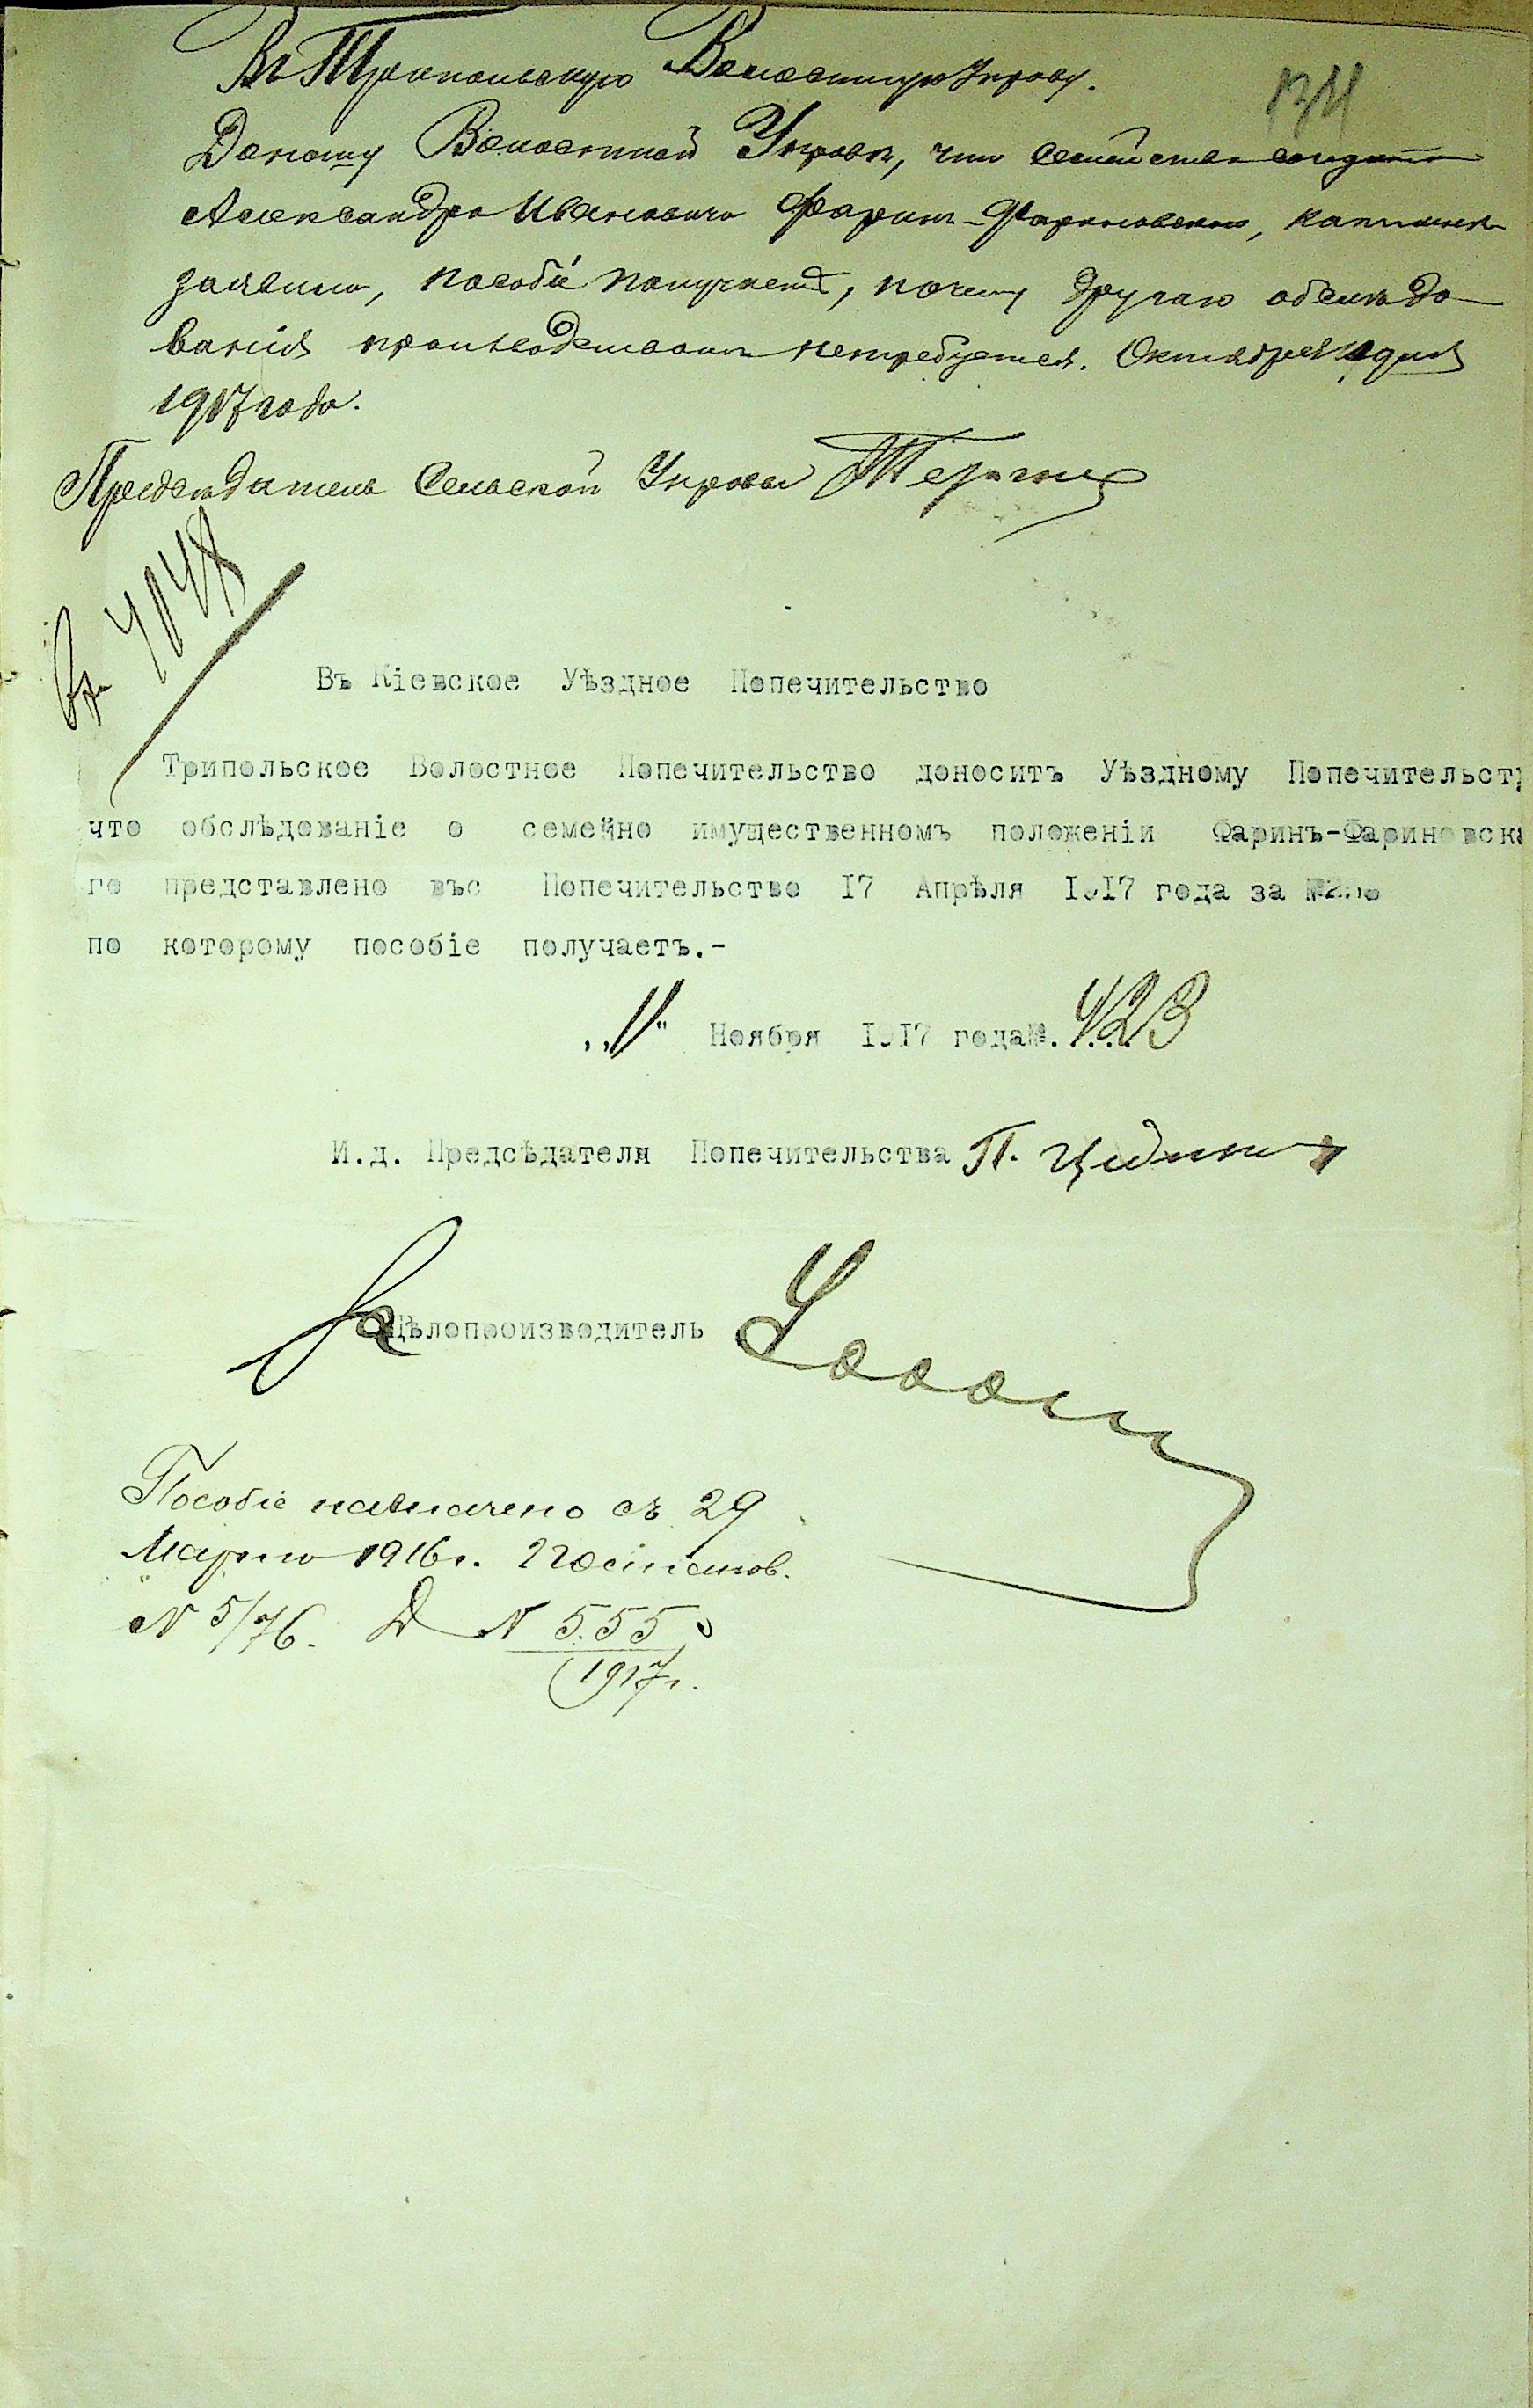 Въ Трипольскую Волостную Управу.
134
Доношу Волостной Управѣ, что семейство солдата
Александра Ивановича Фаринъ-Фариновскаго,
заявила, пособіе получаетъ, почему другаго обслѣдо-
ванія производить не требуется. Октября дня
1917 года.
Предсѣдатель Сельской Управы
Въ Кіевское Уѣздное Попечительство
Трипольское Волостное Попечительство доноситъ Уѣздному Попечительст
что обслѣдованіе о семейно имущественномъ положеніи Фаринъ-Фариновска
го представлено въ Попечительство 17 Апрѣля 1917 года за
по которому пособіе получаетъ.-
„11" Ноября 1917 года №. 423
И.д. Предсѣдателя Попечительства П.
За Дѣлопроизводитель
Пособіе назначено съ 29
Марта 1916 г. Постанов.
N 5/76. Д N 555
1917 г.